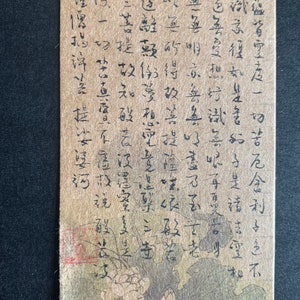 蘊皆空度一切苦厄舍利子色不
識亦復如是舍利子是諸法空相
色無受想行識無眼耳鼻舌身
無無明亦無無明盡乃至無老
以無所得故菩提薩埵依般若
遠離顛倒夢想究竟涅槃三世
三菩提故知般若波羅蜜多是
除一切苦真實不虛故說般若波
羅僧揭諦菩提娑婆訶